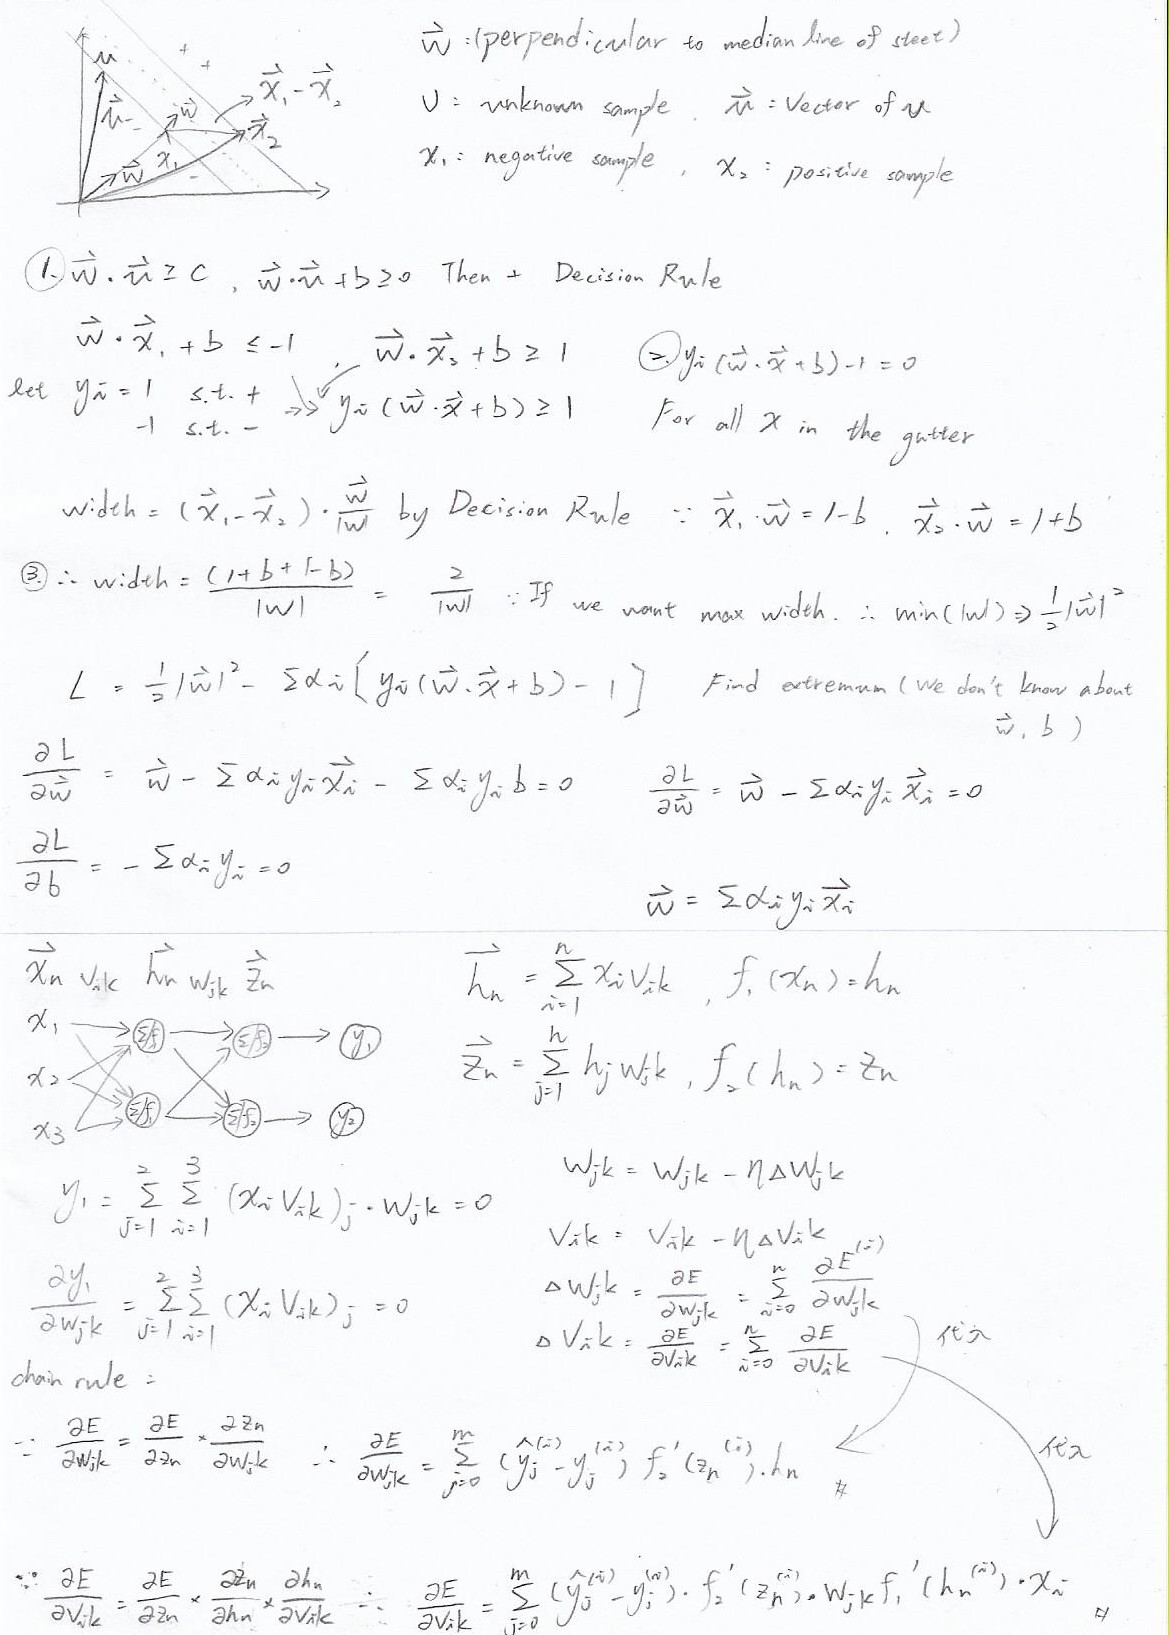 w⃗ : (perpendicular to median line of steet)
U = unknown sample . u⃗ : Vector of u
x₁ : negative sample , x₂ : positive sample
u
+
+
u⃗
w⃗
x⃗₁ - x⃗₂
x⃗₂
x₁
w⃗
① w⃗ · u⃗ ≥ C , w⃗·u⃗ + b ≥ 0 Then + Decision Rule
w⃗ · x⃗₁ + b ≤ -1 , w⃗ · x⃗₂ + b ≥ 1
② yᵢ (w⃗ · x⃗ + b) - 1 = 0
let yᵢ = 1 s.t. +
-1 s.t. -
yᵢ (w⃗ · x⃗ + b) ≥ 1
For all x in the gutter
width = (x⃗₁ - x⃗₂) · w⃗/|w| by Decision Rule ∵ x⃗₁ · w⃗ = 1-b , x⃗₂ · w⃗ = 1+b
③ ∴ width = (1+b+1-b)/|w| = 2/|w| ∵ If we want max width. ∴ min(|w|) ⇒ ½|w⃗|²
L = ½|w⃗|² - Σαᵢ[yᵢ(w⃗·x⃗+b) - 1] Find extremum (We don't know about
w⃗, b)
∂L/∂w⃗ = w⃗ - Σαᵢyᵢx⃗ᵢ - Σαᵢyᵢb = 0
∂L/∂w⃗ = w⃗ - Σαᵢyᵢx⃗ᵢ = 0
∂L/∂b = - Σαᵢyᵢ = 0
w⃗ = Σαᵢyᵢx⃗ᵢ
x⃗n Vik h⃗n Wjk z⃗n
h⃗n = Σ(i=1→n) xᵢVik , f₁(xn) = hn
x₁ Σ/f₁ Σ/f₂ y₁
x₂
x₃ Σ/f₁ Σ/f₂ y₂
z⃗n = Σ(j=1→n) hjWjk , f₂(hn) = zn
y₁ = Σ(j=1→2) Σ(i=1→3) (xᵢVik)j · Wjk = 0
Wjk = Wjk - ηΔWjk
Vik = Vik - ηΔVik
∂y₁/∂Wjk = Σ(j=1→2) Σ(i=1→3) (xᵢVik)j = 0
ΔWjk = ∂E/∂Wjk = Σ(i=0→n) ∂E⁽ⁱ⁾/∂Wjk
ΔVik = ∂E/∂Vik = Σ(i=0→n) ∂E/∂Vik
代入
chain rule :
∵ ∂E/∂Wjk = ∂E/∂zn × ∂zn/∂Wjk ∴ ∂E/∂Wjk = Σ(j=0→m) (ŷj⁽ⁱ⁾ - yj⁽ⁱ⁾) f₂'(zn⁽ⁱ⁾)·hn #
代入
∵ ∂E/∂Vik = ∂E/∂zn × ∂zn/∂hn × ∂hn/∂Vik ∴ ∂E/∂Vik = Σ(j=0→m) (ŷj⁽ⁱ⁾ - yj⁽ⁱ⁾)·f₂'(zn⁽ⁱ⁾)·Wjk f₁'(hn⁽ⁱ⁾)·xᵢ #